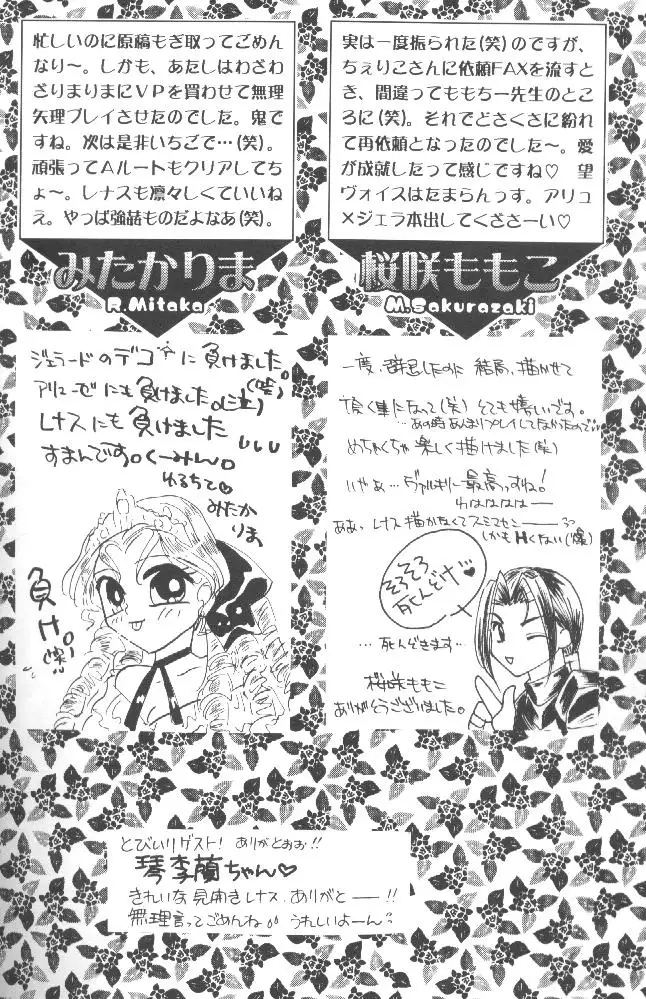 忙しいのに原稿もぎ取ってごめん
なり〜。しかも、あたしはわざわ
ざりまりまにVPを買わせて無理
矢理プレイさせたのでした。鬼で
すね。次は是非いちごで…(笑)。
頑張ってAルートもクリアしてち
ょ〜。レナスも凛々しくていいね
え。やっぱ強詰ものだよなあ(笑)。
みたかりま
R.Mitaka
ジェラードのデコに負けました。
アリューゼにも負けました。(泣)(嘘)
レナスにも負けました
すまんです。くーみん。
ゆるちて♡
みたか
りま
負け。
(笑)
実は一度振られた(笑)のですが、
ちぇりこさんに依頼FAXを流すと
き、間違ってももちー先生のとこ
ろに(笑)。それでどさくさに紛れ
て再依頼となったのでした〜。愛
が成就したって感じですね♡ 望
ヴォイスはたまらんっす。アリュ
×ジェラ本出してくださーい♡
桜咲ももこ
M.Sakurazaki
一度、辞退したのに結局、描かせて
頂く事になって(笑)とても嬉しいです。
…あの時あんまりプレイしてなかったので…
めちゃくちゃ楽しく描けました(笑)
いやぁ…ヴァルキリー最高っすね!
わはははは
ああ、レナス描かなくてスミマセン――
しかもHくない(爆)
そろそろ
死んどけ♥
…死んどきます…
桜咲ももこ
ありがとうございました。
とびいりゲスト! ありがとおお!!
琴李蘭ちゃん♡
きれいな見開きレナス、ありがと――!!
無理言ってごめんね うれしいよーん